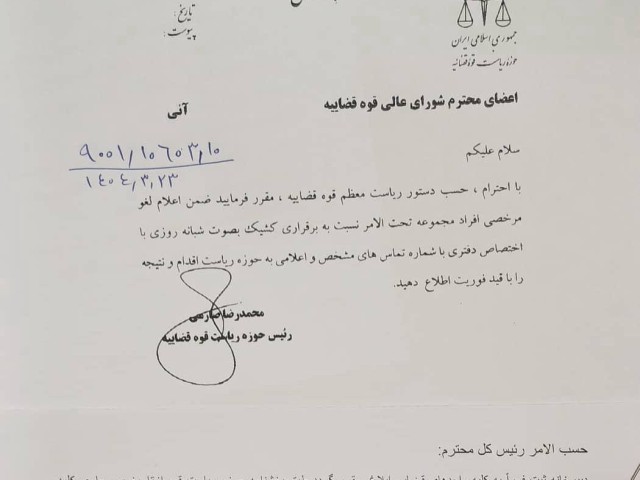 تاریخ:
پیوست:
جمهوری اسلامی ایران
حوزه ریاست قوه قضائیه
اعضای محترم شورای عالی قوه قضاییه
آنی
۹۰۰۱/۱۰۶۰۳/۱۰
۱۴۰۴/۳/۲۳
سلام علیکم
با احترام ، حسب دستور ریاست معظم قوه قضاییه ، مقرر فرمایید ضمن اعلام لغو
مرخصی افراد مجموعه تحت الامر نسبت به برقراری کشیک بصوت شبانه روزی با
اختصاص دفتری با شماره تماس های مشخص و اعلامی به حوزه ریاست اقدام و نتیجه
را با قید فوریت اطلاع دهید.
محمدرضا صارمی
رئیس حوزه ریاست قوه قضاییه
حسب الامر رئیس کل محترم: